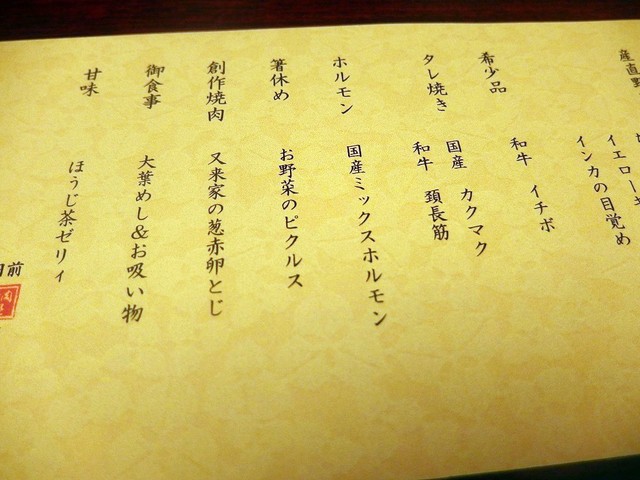 産直野
イエロー
インカの目覚め
希少品
和牛 イチボ
タレ焼き
国産 カクマク
和牛 頚長筋
ホルモン
国産ミックスホルモン
箸休め
お野菜のピクルス
創作焼肉
又来家の葱赤卵とじ
御食事
大葉めし&お吸い物
甘味
ほうじ茶ゼリィ
前